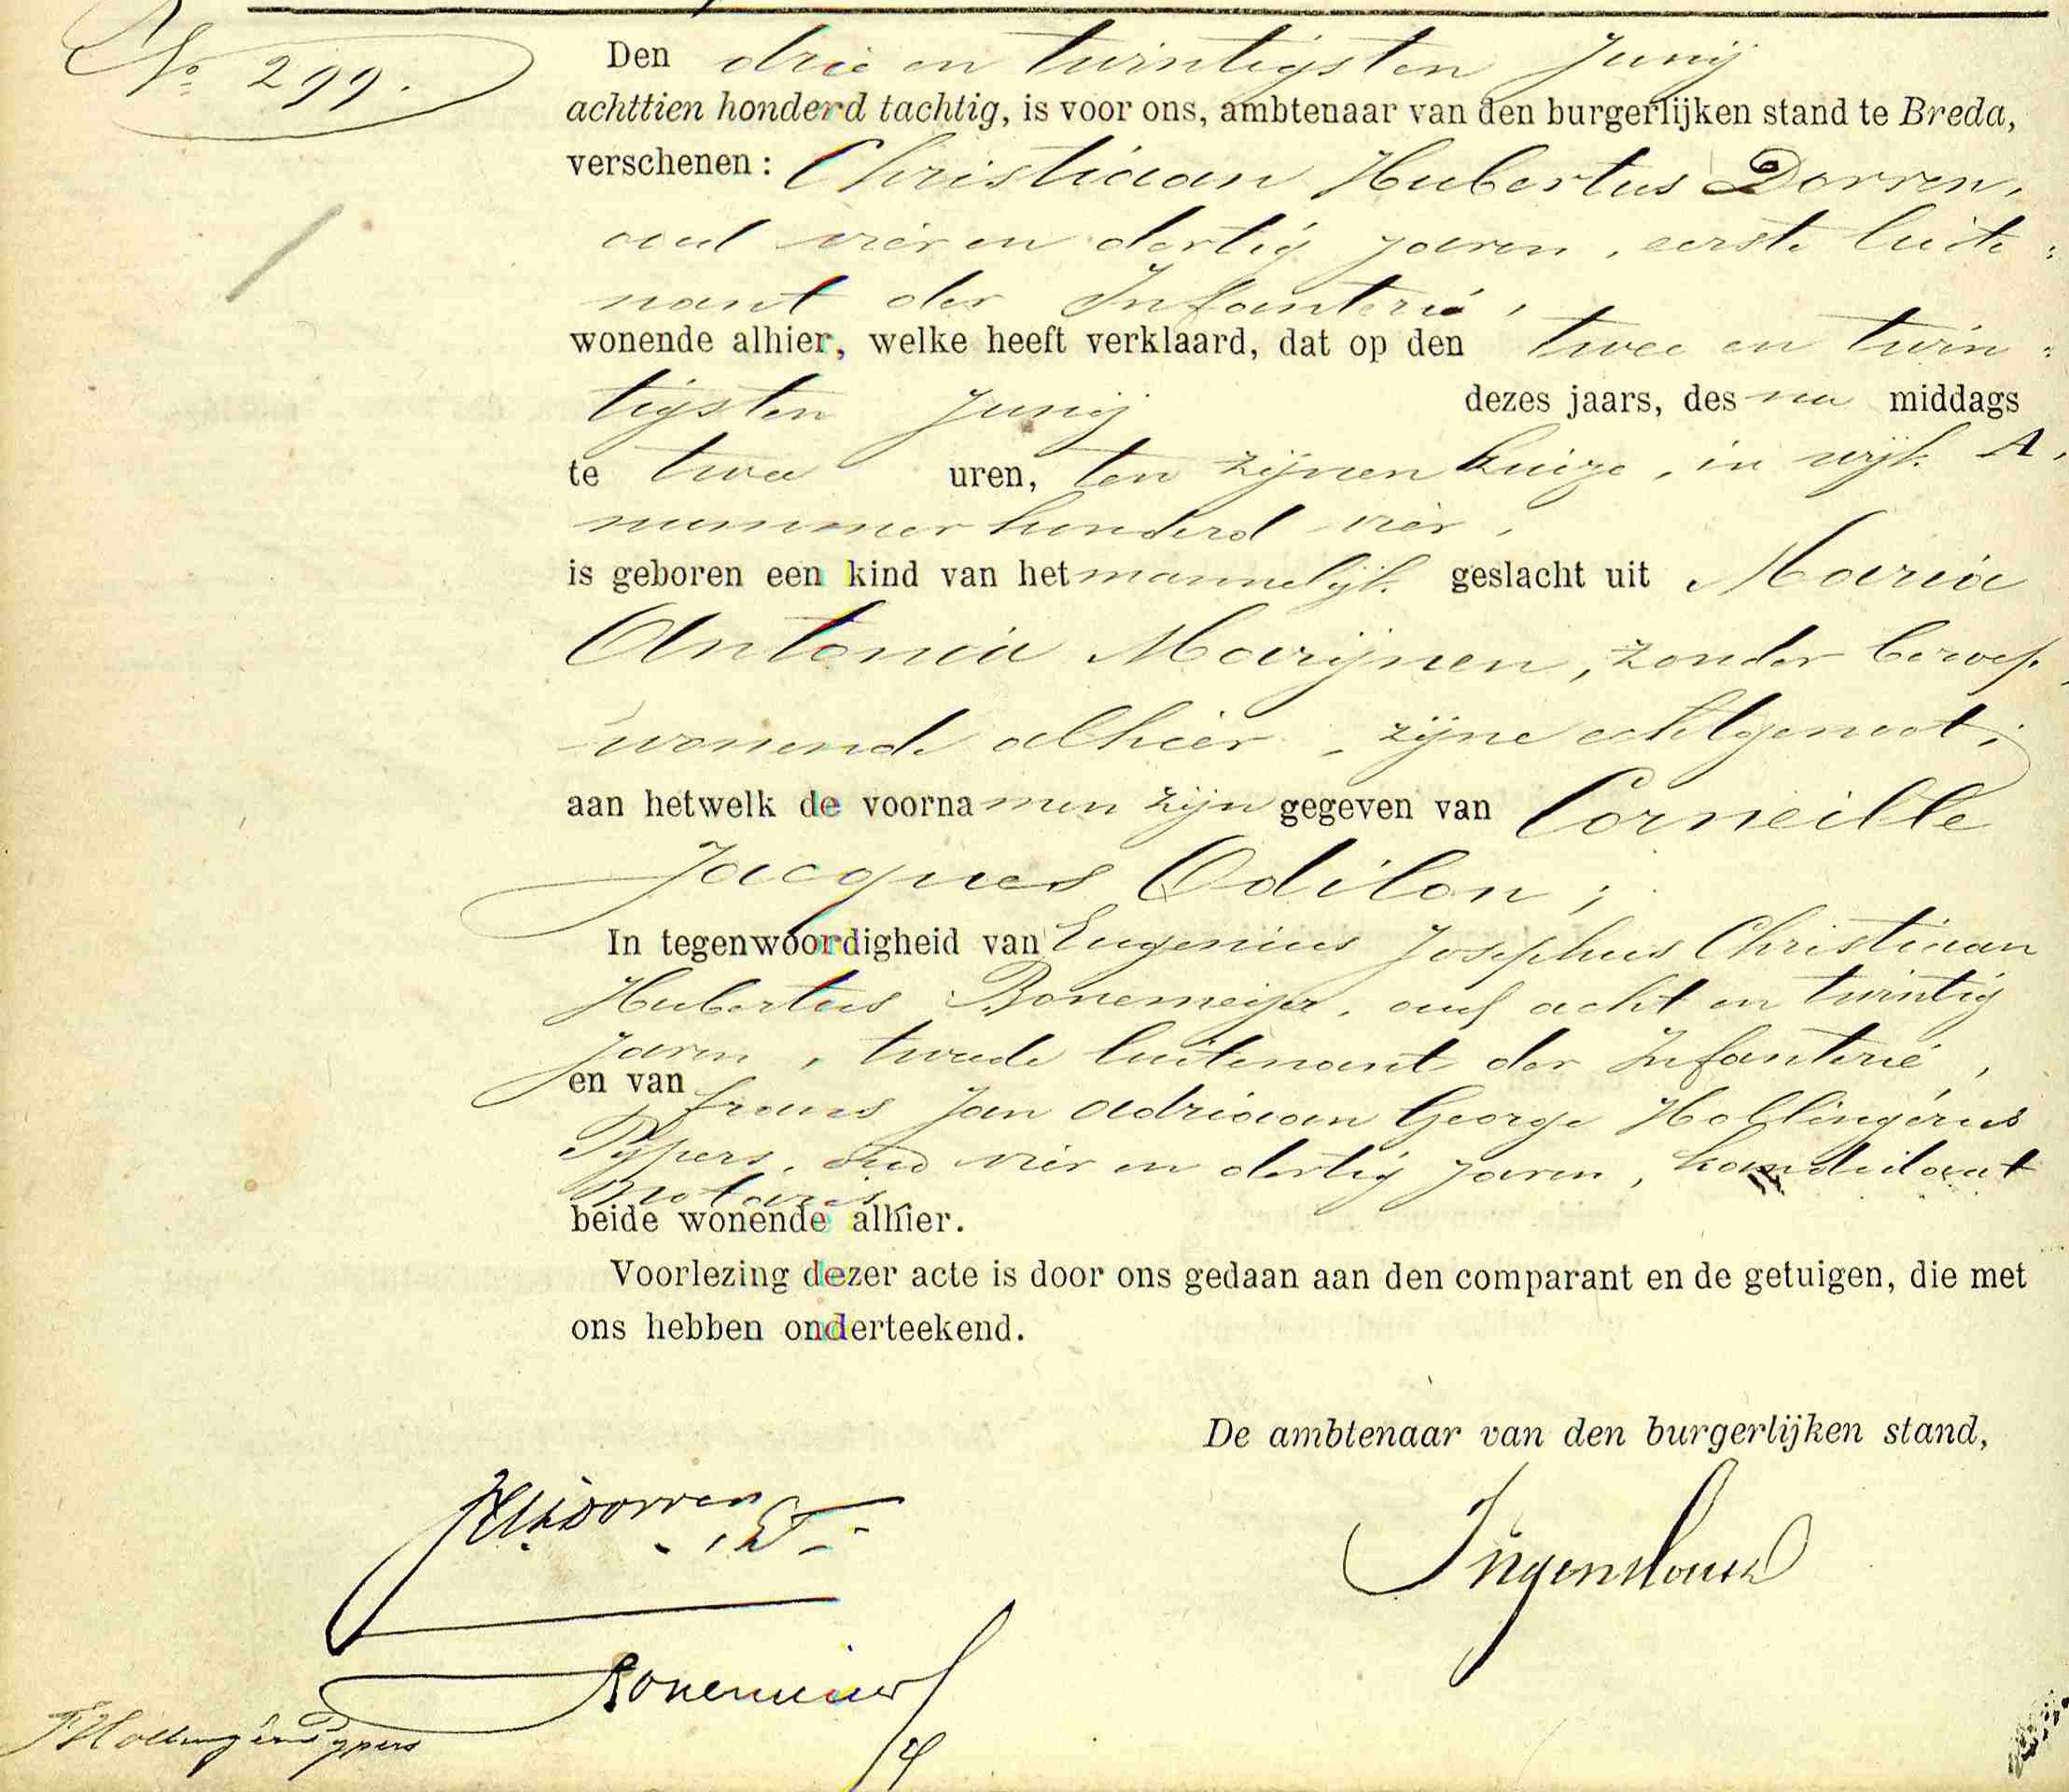 No 299.
Den drie en twintigsten Junij
achttien honderd tachtig, is voor ons, ambtenaar van den burgerlijken stand te Breda,
verschenen: Christiaan Hubertus Dorren,
oud vier en dertig jaren, eerste luite:
nant der Infanterie,
wonende alhier, welke heeft verklaard, dat op den twee en twin:
tigsten Junij dezes jaars, des na middags
te twee uren, ten zijnen huize, in wijk A,
nummer honderd vier,
is geboren een kind van het mannelijk geslacht uit Maria
Antonia Marijnen, zonder beroep,
wonende alhier, zijne echtgenoot;
aan hetwelk de voornamen zijn gegeven van Corneille
Jacques Odilon;
In tegenwoordigheid van Eugenius Josephus Christiaan
Hubertus Bonemeijer, oud acht en twintig
jaren, tweede luitenant der Infanterie,
en van frans Jan Adriaan George Hollingérus
Pijpers, oud vier en dertig jaren, kandidaat
notaris,
beide wonende alhier.
Voorlezing dezer acte is door ons gedaan aan den comparant en de getuigen, die met
ons hebben onderteekend.
De ambtenaar van den burgerlijken stand,
Dorren
Ingenhousz
Bonemeijer
FHollingérus Pijpers